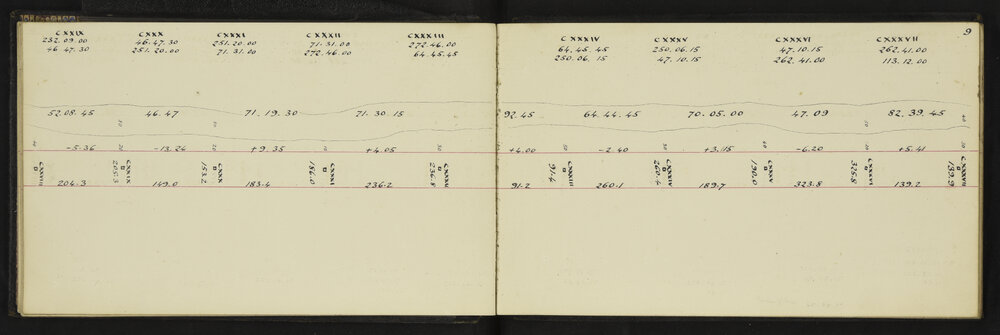 CXXIX CXXX CXXXI CXXXII CXXXIII
232.09.00 46.47.30 251.20.00 71.31.00 272.46.00
46 47.30 251.20.00 71.31.00 272.46.00 64.45.45
52.08.45 46.47 71.19.30 71.30.15
-5.36 -13.24 +9.35 +4.05
CXXVIII CXXIX CXXX CXXXI CXXXII
205.3 153.2 186.0 236.8
204.3 149.0 183.4 236.2
9
CXXXIV CXXXV CXXXVI CXXXVII
64.45.45 250.06.15 47.10.15 262.41.00
250.06.15 47.10.15 262.41.00 113.12.00
92.45 64.44.45 70.05.00 47.09 82.39.45
+4.00 -2.40 +3.15 -6.20 +5.41
CXXXIII CXXXIV CXXXV CXXXVI CXXXVII
91.4 260.4 190.0 325.8 139.9
91.2 260.1 189.7 323.8 139.2